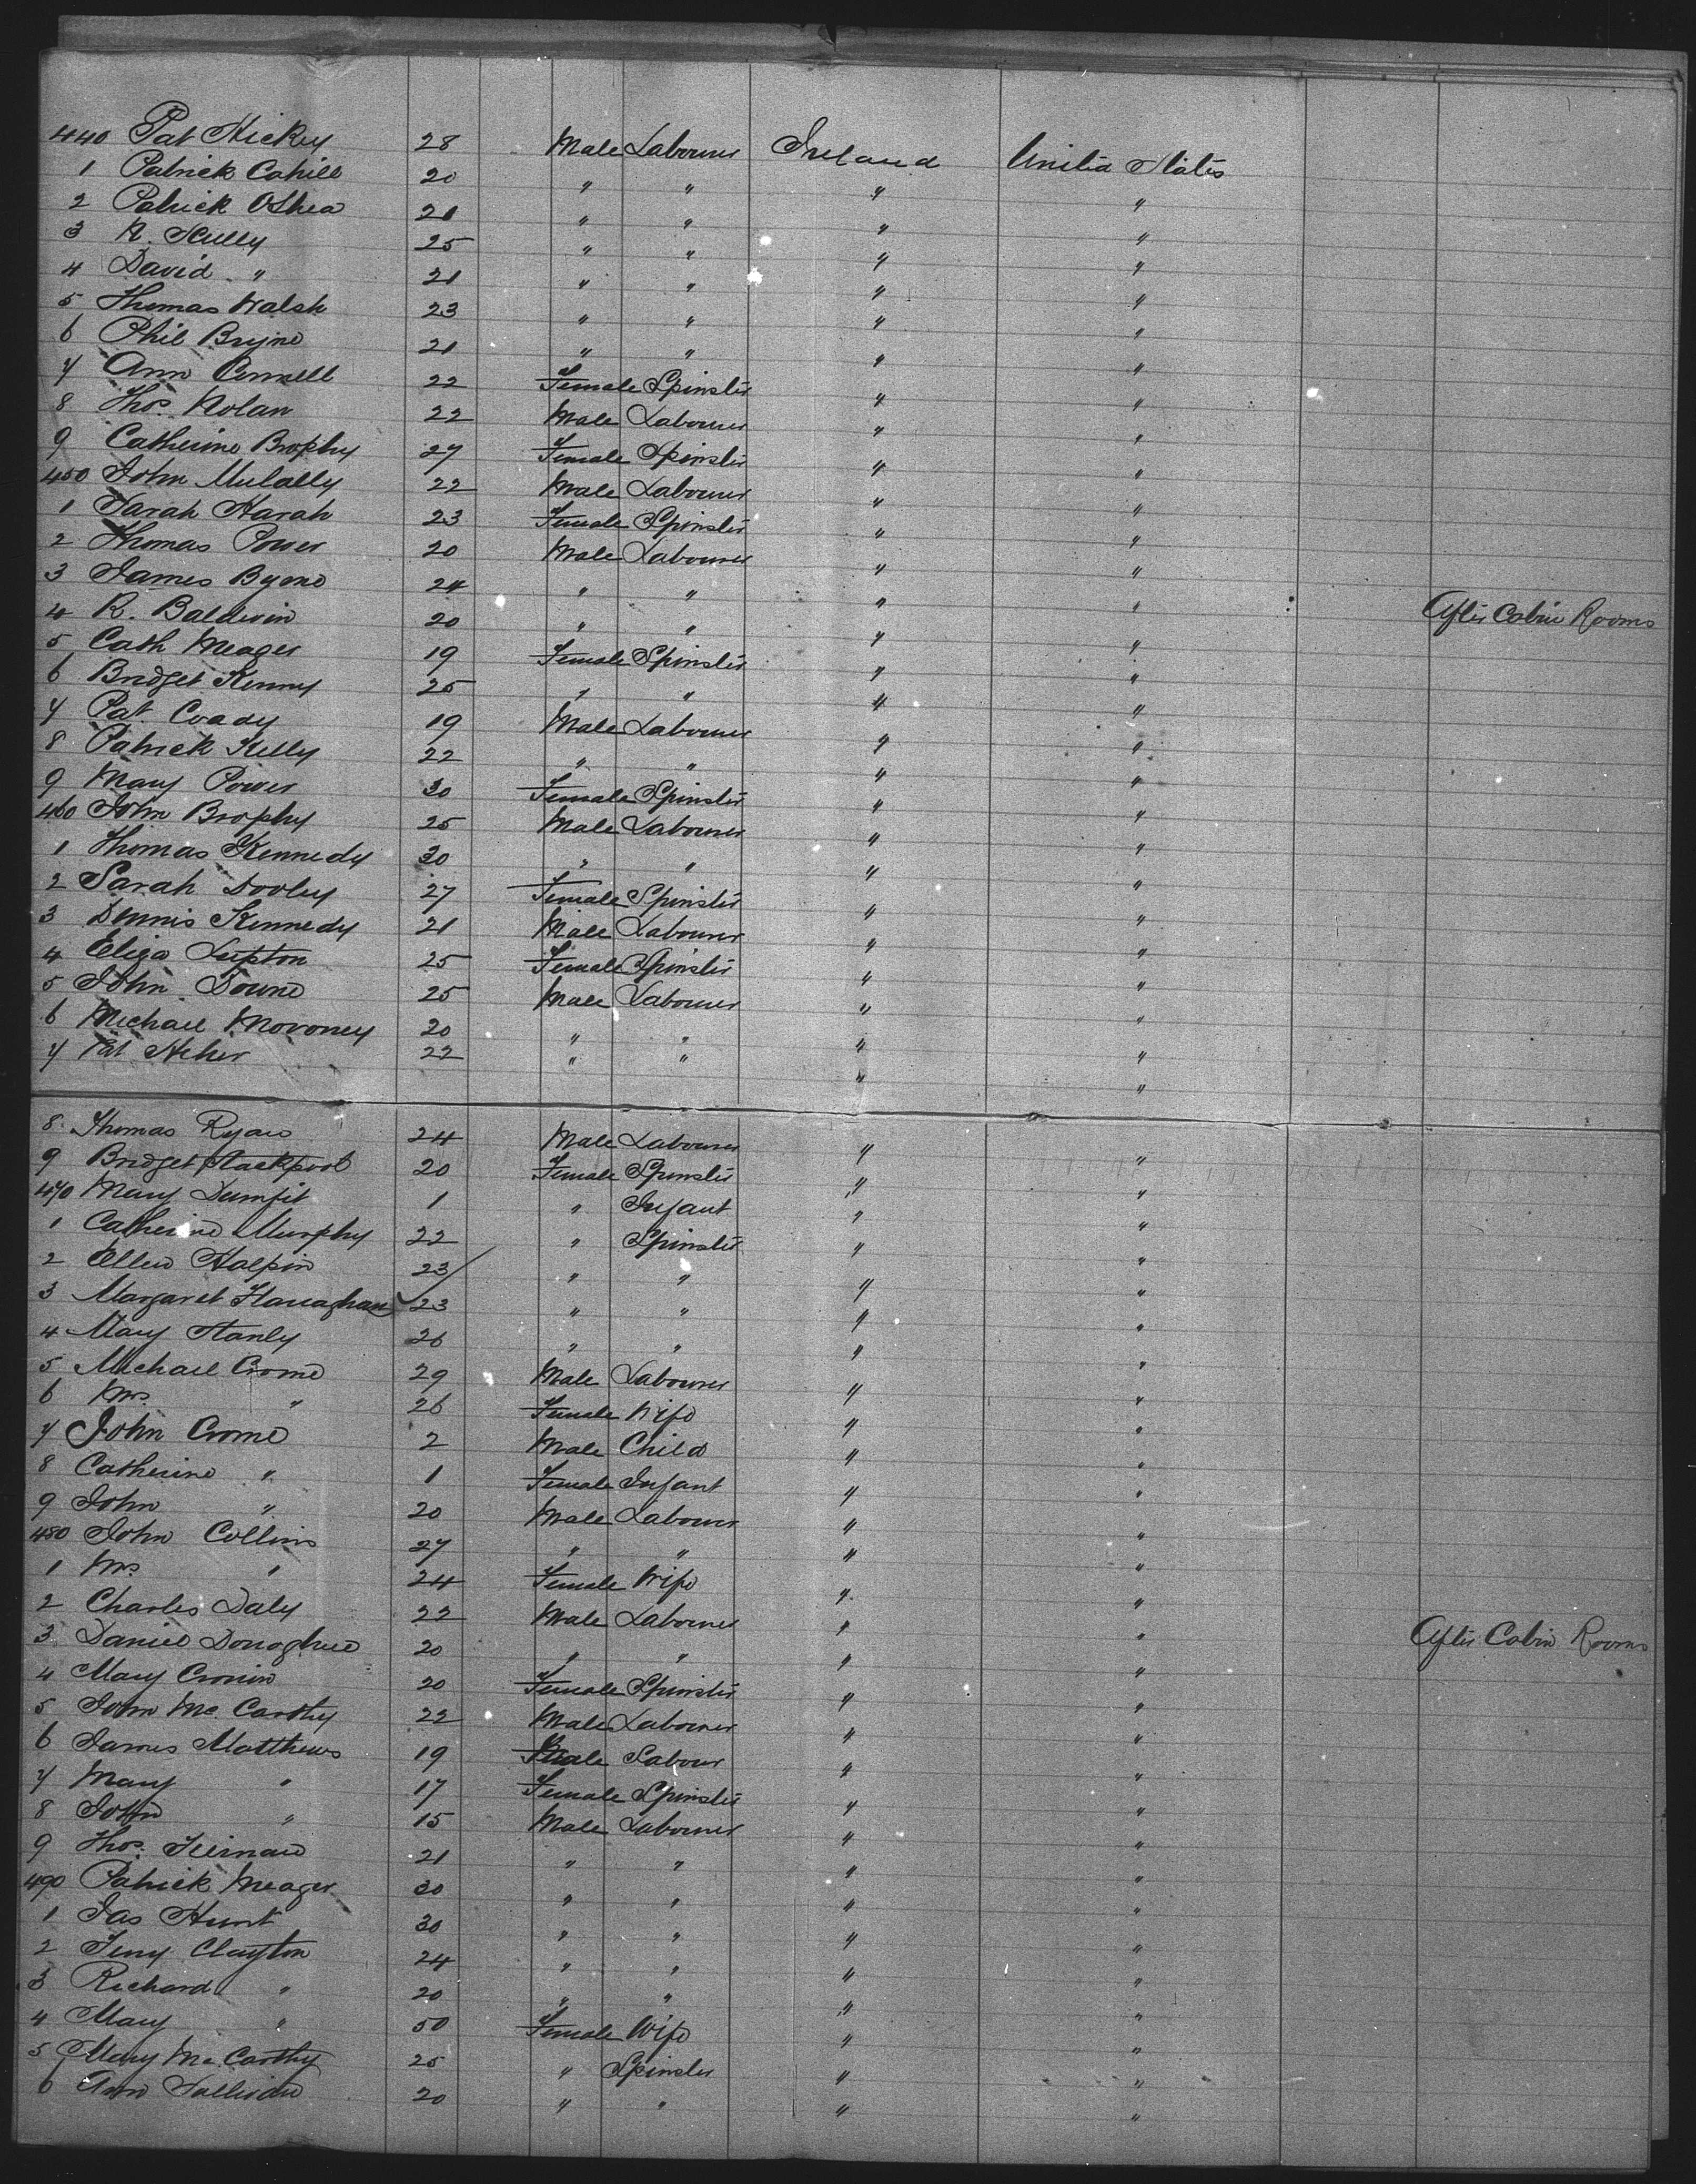 440 Pat Hickey 28 Male Labourer Ireland United States
1 Patrick Cahill 20 " " " "
2 Patrick OShea 21 " " " "
3 N. Scully 25 " " " "
4 David " 21 " " " "
5 Thomas Walsh 23 " " " "
6 Phil Bryne 21 " " " "
7 Ann Connell 22 Female Spinster " "
8 Thos. Nolan 22 Male Labourer " "
9 Catherine Brophy 27 Female Spinster " "
450 John Mulally 22 Male Labourer " "
1 Sarah Harah 23 Female Spinster " "
2 Thomas Power 20 Male Labourer " "
3 James Byrne 24 " " " "
4 R. Baldwin 20 " " " " After Cabin Rooms
5 Cath Meager 19 Female Spinster " "
6 Bridget Kenny 25 " " " "
7 Pat. Coady 19 Male Labourer " "
8 Patrick Kelly 22 " " " "
9 Mary Power 30 Female Spinster " "
460 John Brophy 25 Male Labourer " "
1 Thomas Kennedy 30 " " " "
2 Sarah Dooley 27 Female Spinster " "
3 Dennis Kennedy 21 Male Labourer " "
4 Eliza Lupton 25 Female Spinster " "
5 John Downe 25 Male Labourer " "
6 Michael Movoney 20 " " " "
7 Pat Aher 22 " " " "
8 Thomas Ryan 24 Male Labourer " "
9 Bridget Stackpool 20 Female Spinster " "
470 Mary Dumfit 1 " Infant " "
1 Catherine Murphy 22 " Spinster " "
2 Ellen Halpin 23 " " " "
3 Margaret Flanaghan 23 " " " "
4 Mary Stanly 26 " " " "
5 Michael Crome 29 Male Labourer " "
6 Mrs. " 26 Female Wife " "
7 John Crome 2 Male Child " "
8 Catherine " 1 Female Infant " "
9 John " 20 Male Labourer " "
480 John Collins 27 " " " "
1 Mrs " 24 Female Wife " "
2 Charles Daly 22 Male Labourer " "
3 Daniel Donoghue 20 " " " " After Cabin Rooms
4 Mary Cronin 20 Female Spinster " "
5 John Mc Carthy 22 Male Labourer " "
6 James Matthews 19 Male Labour " "
7 Mary " 17 Female Spinster " "
8 John " 15 Male Labourer " "
9 Thos. 21 " " " "
490 Patrick Meager 30 " " " "
1 Jas Hunt 30 " " " "
2 Clayton 24 " " " "
3 Richard " 20 " " " "
4 Mary " 50 Female Wife " "
5 Mary Mc Carthy 25 " Spinster " "
6 Ann Sullivan 20 " " " "